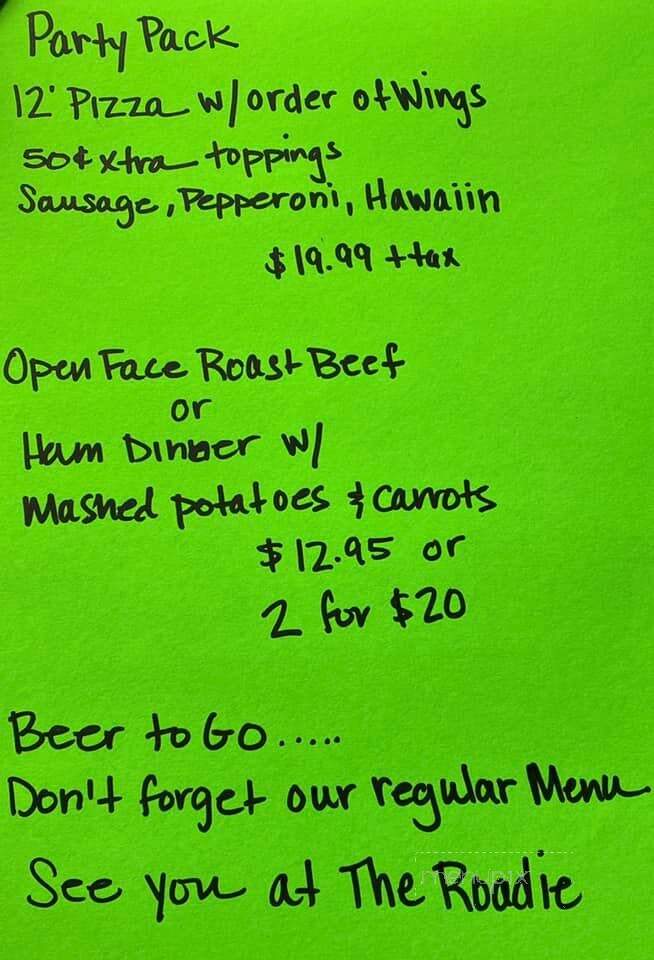 Party Pack
12' Pizza w/order of Wings
50¢ xtra toppings
Sausage, Pepperoni, Hawaiin
$19.99 +tax
Open Face Roast Beef
or
Ham Dinner w/
Mashed potatoes & carrots
$12.95 or
2 for $20
Beer to Go.....
Don't forget our regular Menu
See you at The Roadie
menupix